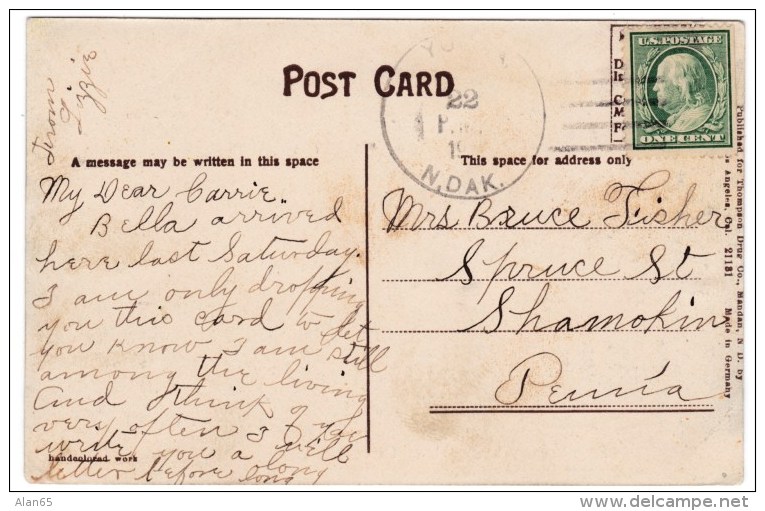 From
Lizzie
POST CARD
22
N. DAK.
U.S. POSTAGE
ONE CENT
A message may be written in this space
This space for address only
My Dear Carrie.
Bella arrived
here last Saturday.
I am only dropping
you this card to let
you know I am still
among the living
and think of you
very often I
write you a
letter before long
Mrs Bruce Fisher
Spruce St
Shamokin
Penn'a
handcolored work
Published for Thompson Drug Co., Mandan, N D. by
Angeles, Cal. 21131 Made in Germany
Alan65
delcampe.net